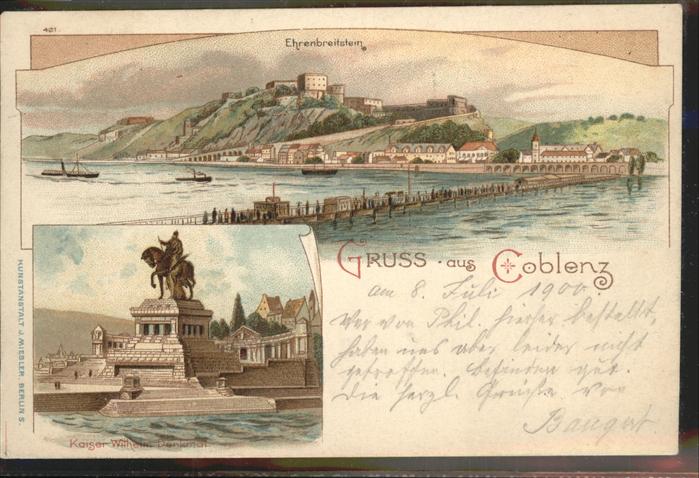 421
Ehrenbreitstein.
GRUSS aus Coblenz
am 8. Juli 1900.
War von Phil. hierher bestellt,
haben uns aber leider nicht
getroffen. Befinden gut.
Die herzl. Grüsse von
Bangert.
Kaiser Wilhelm Denkmal
KUNSTANSTALT J. MIESLER, BERLIN S.